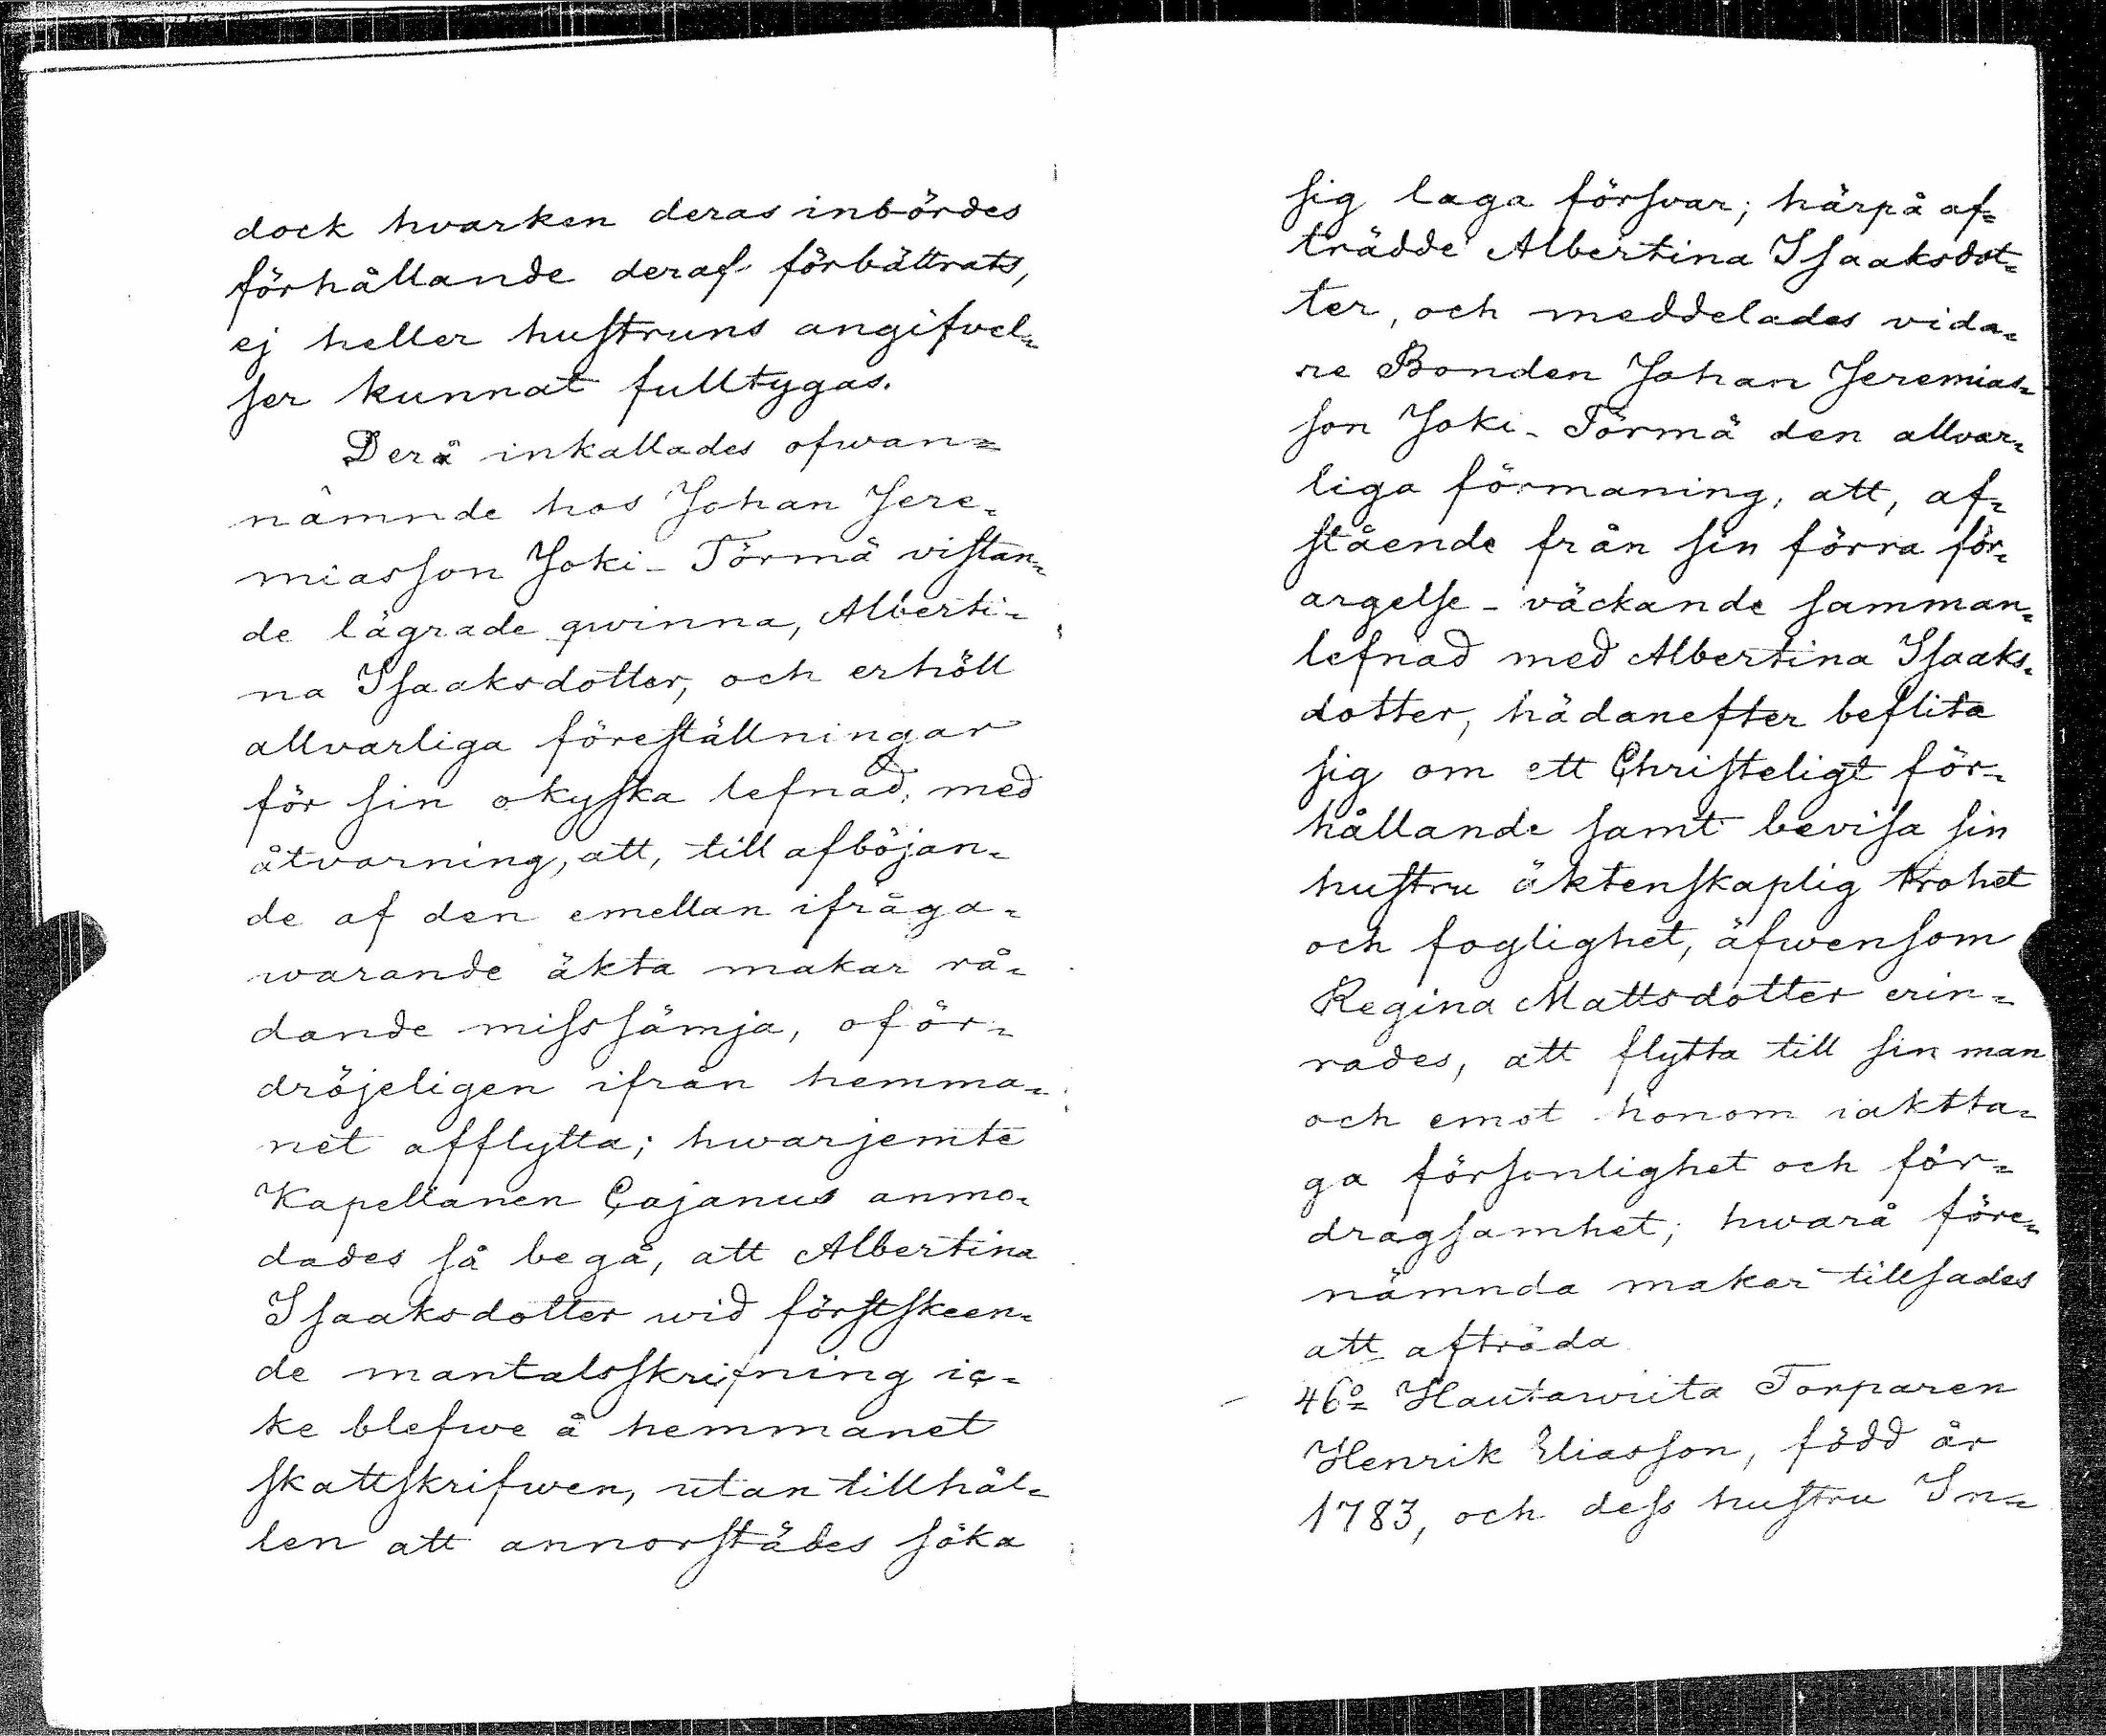 dock hvarken deras inbördes
förhållande deraf förbättrats,
ej heller hustruns angifvel=
ser kunnat fulltygas.
Derå inkallades ofwan=
nämnde hos Johan Jere=
miasson Joki-Törmä vistan=
de lägrade qwinna, Alberti=
na Isaaksdotter, och erhöll
allvarliga föreställningar
för sin okyska lefnad, med
åtvarning, att, till afböjan=
de af den emellan ifråga=
warande äkta makar rå=
dande misssämja, oför=
dröjeligen ifrån hemma=
net afflytta; hwarjemte
Kapellanen Cajanus anmo=
dades så begå, att Albertina
Isaaksdotter wid förstskeen=
de mantalsskrifning ic=
ke blefwe å hemmanet
skattskrifwen, utan tillhål=
len att annorstädes söka
sig laga försvar; härpå af=
trädde Albertina Isaaksdot=
ter, och meddelades vida=
re Bonden Johan Jeremias=
son Joki-Törmä den allvar=
liga förmaning, att, af=
stående från sin förra för=
argelse-väckande samman=
lefnad med Albertina Isaaks=
dotter, hädanefter beflita
sig om ett Christeligt för=
hållande samt bevisa sin
hustru äktenskaplig trohet
och foglighet, äfwensom
Regina Mattsdotter erin=
rades, att flytta till sin man
och emot honom iaktta=
ga försonlighet och för=
dragsamhet; hwarå före=
nämnda makar tillsades
att afträda
46º Hautawiita Torparen
Henrik Eliasson, född år
1783, och dess hustru In=